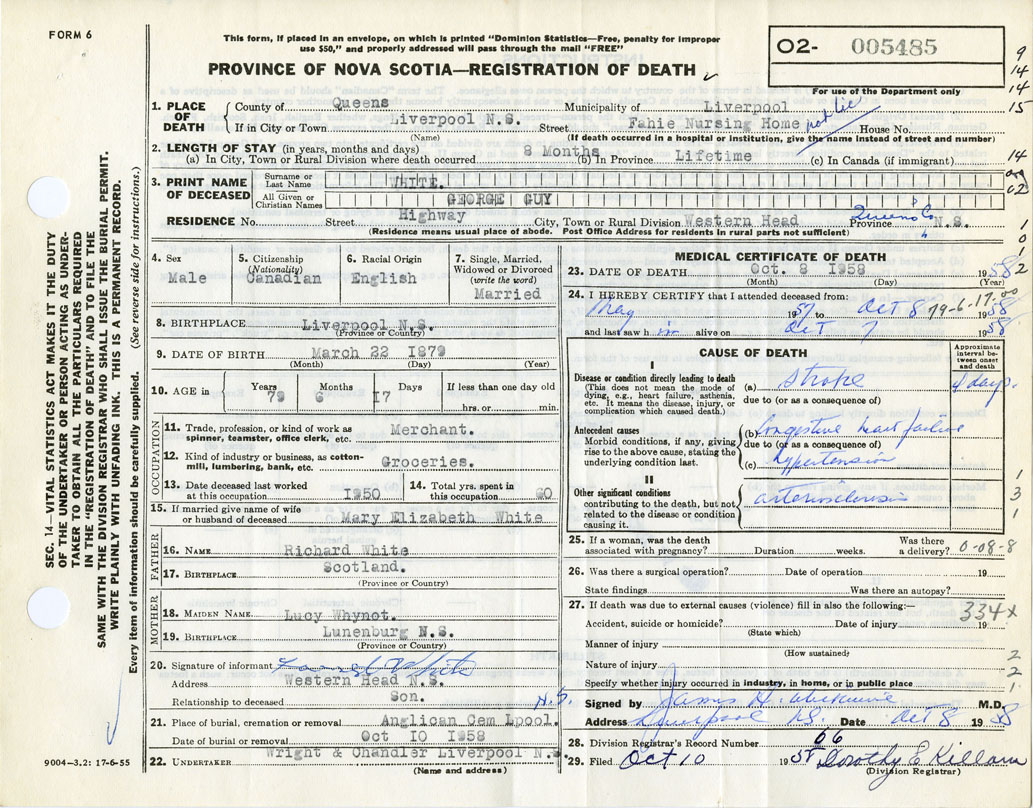 FORM 6
This form, if placed in an envelope, on which is printed "Dominion Statistics—Free, penalty for improper
use $50," and properly addressed will pass through the mail "FREE"
PROVINCE OF NOVA SCOTIA—REGISTRATION OF DEATH
02- 005485
For use of the Department only
9
14
14
15
14
02
1. PLACE OF DEATH
County of Queens Municipality of Liverpool
If in City or Town Liverpool N.S. Street Fahie Nursing Home House No.
(Name) (If death occurred in a hospital or institution, give the name instead of street and number)
2. LENGTH OF STAY (in years, months and days)
(a) In City, Town or Rural Division where death occurred 8 Months (b) In Province Lifetime (c) In Canada (if immigrant)
3. PRINT NAME OF DECEASED
Surname or Last Name WHITE.
All Given or Christian Names GEORGE GUY
RESIDENCE No. Street Highway City, Town or Rural Division Western Head Queens Co Province N.S.
(Residence means usual place of abode. Post Office Address for residents in rural parts not sufficient)
SEC. 14—VITAL STATISTICS ACT MAKES IT THE DUTY
OF THE UNDERTAKER OR PERSON ACTING AS UNDER-
TAKER TO OBTAIN ALL THE PARTICULARS REQUIRED
IN THE "REGISTRATION OF DEATH" AND TO FILE THE
SAME WITH THE DIVISION REGISTRAR WHO SHALL ISSUE THE BURIAL PERMIT.
WRITE PLAINLY WITH UNFADING INK. THIS IS A PERMANENT RECORD.
Every item of information should be carefully supplied. (See reverse side for instructions.)
4. Sex
Male
5. Citizenship (Nationality)
Canadian
6. Racial Origin
English
7. Single, Married, Widowed or Divorced (write the word)
Married
8. BIRTHPLACE Liverpool N.S.
(Province or Country)
9. DATE OF BIRTH March 22 1879
(Month) (Day) (Year)
10. AGE in Years 79 Months 6 Days 17 If less than one day old
hrs. or min.
OCCUPATION
11. Trade, profession, or kind of work as spinner, teamster, office clerk, etc. Merchant.
12. Kind of industry or business, as cotton-mill, lumbering, bank, etc. Groceries.
13. Date deceased last worked at this occupation 1950
14. Total yrs. spent in this occupation 60
15. If married give name of wife or husband of deceased Mary Elizabeth White
FATHER
16. NAME Richard White
17. BIRTHPLACE Scotland.
(Province or Country)
MOTHER
18. MAIDEN NAME Lucy Whynot.
19. BIRTHPLACE Lunenburg N.S.
(Province or Country)
20. Signature of informant White
Address Western Head N.S.
Relationship to deceased Son. N.S.
21. Place of burial, cremation or removal Anglican Cem Lpool.
Date of burial or removal Oct 10 1958
22. UNDERTAKER Wright & Chandler Liverpool N.S.
(Name and address)
9004—3.2: 17-6-55
MEDICAL CERTIFICATE OF DEATH
23. DATE OF DEATH Oct. 8 1958 1958 2
(Month) (Day) (Year)
24. I HEREBY CERTIFY that I attended deceased from:
May 1957 to Oct 8 79-6-17.00 1958
and last saw him alive on Oct 7 1958
CAUSE OF DEATH
Approximate interval between onset and death
I
Disease or condition directly leading to death
(This does not mean the mode of dying, e.g., heart failure, asthenia, etc. It means the disease, injury, or complication which caused death.)
(a) Stroke 4 days.
due to (or as a consequence of)
Antecedent causes
Morbid conditions, if any, giving rise to the above cause, stating the underlying condition last.
(b) Congestive heart failure
due to (or as a consequence of)
(c) hypertension
II
Other significant conditions
contributing to the death, but not related to the disease or condition causing it.
arteriosclerosis
1
3
1
25. If a woman, was the death associated with pregnancy? Duration weeks. Was there a delivery? 0-08-8
26. Was there a surgical operation? Date of operation 19
State findings Was there an autopsy?
27. If death was due to external causes (violence) fill in also the following:— 334x
Accident, suicide or homicide? Date of injury 19
(State which)
Manner of injury 2
(How sustained)
Nature of injury 2
Specify whether injury occurred in industry, in home, or in public place 1
Signed by James H. M.D.
Address Liverpool N.S. Date Oct 8 1958
28. Division Registrar's Record Number 66
29. Filed Oct 10 1958 Dorothy C Killam
(Division Registrar)